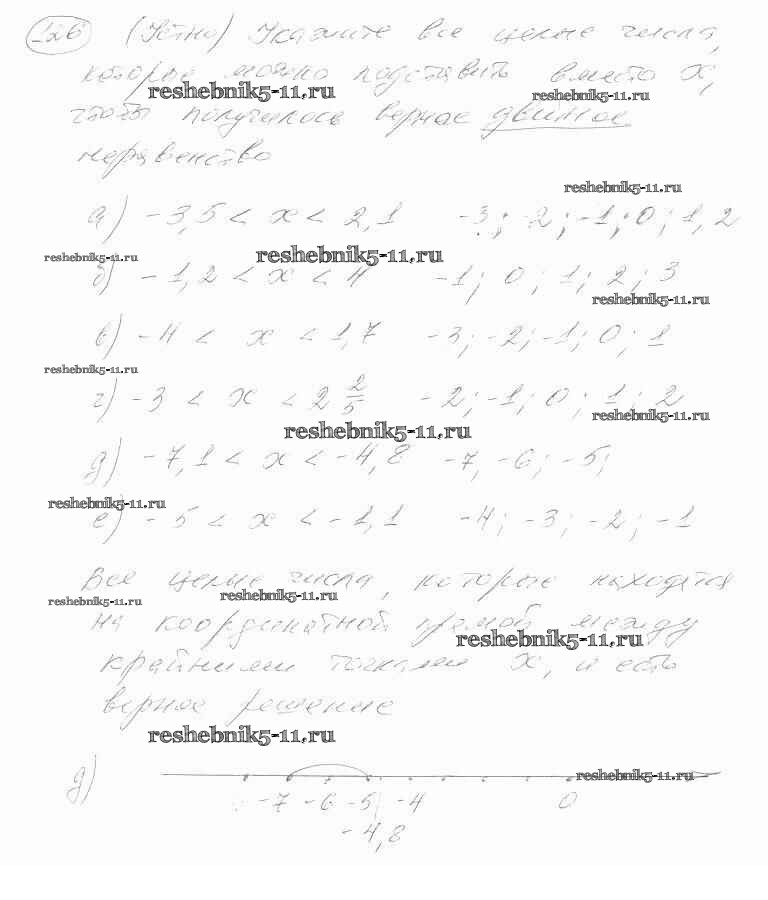 126 (Устно) Укажите все целые числа,
которые можно подставить вместо x,
reshebnik5-11.ru reshebnik5-11.ru
чтобы получилось верное двойное
неравенство
reshebnik5-11.ru
а) -3,5 < x < 2,1 -3; -2; -1; 0; 1, 2
reshebnik5-11.ru reshebnik5-11.ru
б) -1,2 < x < 4 -1; 0; 1; 2; 3
reshebnik5-11.ru
в) -4 < x < 1,7 -3; -2; -1; 0; 1
reshebnik5-11.ru
г) -3 < x < 2 2/5 -2; -1; 0; 1; 2
reshebnik5-11.ru
reshebnik5-11.ru
д) -7,1 < x < -4,8 -7, -6; -5;
reshebnik5-11.ru
е) -5 < x < -1,1 -4; -3; -2; -1
Все целые числа, которые находятся
reshebnik5-11.ru reshebnik5-11.ru
на координатной прямой между
reshebnik5-11.ru
крайними точками x, и есть
верное решение
reshebnik5-11.ru
д) reshebnik5-11.ru
-7 -6 -5 -4 0
-4,8